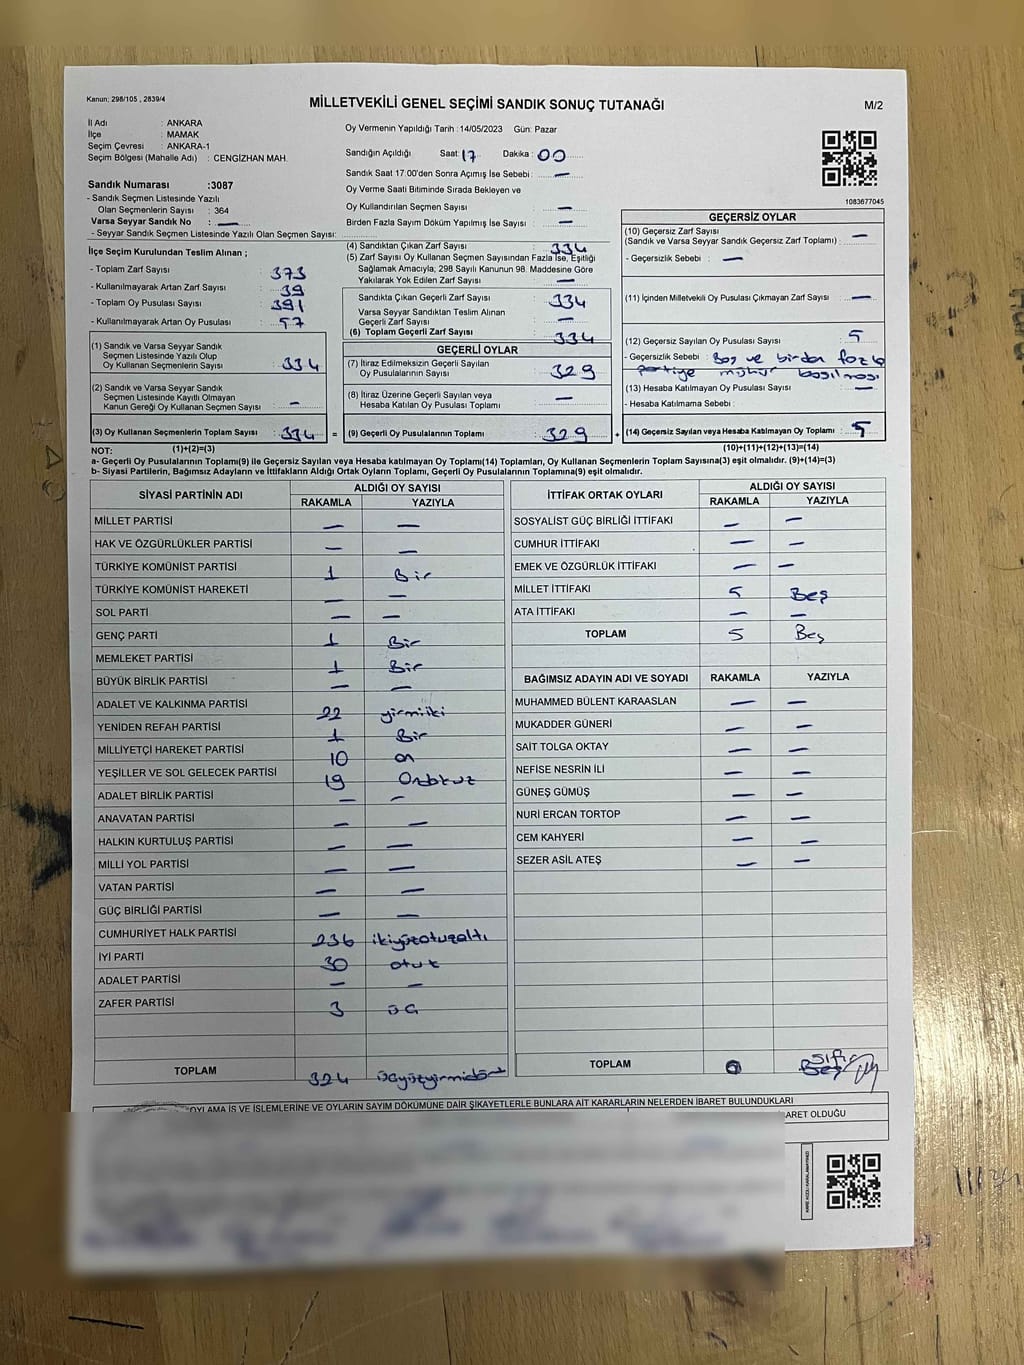 Kanun: 298/105 , 2839/4
MİLLETVEKİLİ GENEL SEÇİMİ SANDIK SONUÇ TUTANAĞI
M/2
İl Adı : ANKARA
İlçe : MAMAK
Seçim Çevresi : ANKARA-1
Seçim Bölgesi (Mahalle Adı) : CENGİZHAN MAH.
Sandık Numarası :3087
- Sandık Seçmen Listesinde Yazılı
Olan Seçmenlerin Sayısı : 364
Varsa Seyyar Sandık No : —
- Seyyar Sandık Seçmen Listesinde Yazılı Olan Seçmen Sayısı:
Oy Vermenin Yapıldığı Tarih : 14/05/2023 Gün: Pazar
Sandığın Açıldığı Saat: 17 Dakika : 00
Sandık Saat 17:00'den Sonra Açımış İse Sebebi : —
Oy Verme Saati Bitiminde Sırada Bekleyen ve
Oy Kullandırılan Seçmen Sayısı : —
Birden Fazla Sayım Döküm Yapılmış İse Sayısı : —
1083677045
İlçe Seçim Kurulundan Teslim Alınan ;
- Toplam Zarf Sayısı : 373
- Kullanılmayarak Artan Zarf Sayısı : 39
- Toplam Oy Pusulası Sayısı : 391
- Kullanılmayarak Artan Oy Pusulası : 57
(1) Sandık ve Varsa Seyyar Sandık
Seçmen Listesinde Yazılı Olup
Oy Kullanan Seçmenlerin Sayısı : 334
(2) Sandık ve Varsa Seyyar Sandık
Seçmen Listesinde Kayıtlı Olmayan
Kanun Gereği Oy Kullanan Seçmen Sayısı : —
(3) Oy Kullanan Seçmenlerin Toplam Sayısı : 334
(4) Sandıktan Çıkan Zarf Sayısı : 334
(5) Zarf Sayısı Oy Kullanan Seçmen Sayısından Fazla İse, Eşitliği
Sağlamak Amacıyla, 298 Sayılı Kanunun 98. Maddesine Göre
Yakılarak Yok Edilen Zarf Sayısı : —
Sandıkta Çıkan Geçerli Zarf Sayısı : 334
Varsa Seyyar Sandıktan Teslim Alınan
Geçerli Zarf Sayısı : —
(6) Toplam Geçerli Zarf Sayısı : 334
GEÇERLİ OYLAR
(7) İtiraz Edilmeksizin Geçerli Sayılan
Oy Pusulalarının Sayısı : 329
(8) İtiraz Üzerine Geçerli Sayılan veya
Hesaba Katılan Oy Pusulası Toplamı : —
= (9) Geçerli Oy Pusulalarının Toplamı : 329
GEÇERSİZ OYLAR
(10) Geçersiz Zarf Sayısı
(Sandık ve Varsa Seyyar Sandık Geçersiz Zarf Toplamı) : —
- Geçersizlik Sebebi : —
(11) İçinden Milletvekili Oy Pusulası Çıkmayan Zarf Sayısı : —
(12) Geçersiz Sayılan Oy Pusulası Sayısı : 5
- Geçersizlik Sebebi : Boş ve birden fazla
partiye mühür basılması
(13) Hesaba Katılmayan Oy Pusulası Sayısı : —
- Hesaba Katılmama Sebebi :
+ (14) Geçersiz Sayılan veya Hesaba Katılmayan Oy Toplamı : 5
NOT: (1)+(2)=(3) (10)+(11)+(12)+(13)=(14)
a- Geçerli Oy Pusulalarının Toplamı(9) ile Geçersiz Sayılan veya Hesaba katılmayan Oy Toplamı(14) Toplamları, Oy Kullanan Seçmenlerin Toplam Sayısına(3) eşit olmalıdır. (9)+(14)=(3)
b- Siyasi Partilerin, Bağımsız Adayların ve İttifakların Aldığı Ortak Oyların Toplamı, Geçerli Oy Pusulalarının Toplamına(9) eşit olmalıdır.
SİYASİ PARTİNİN ADI ALDIĞI OY SAYISI
RAKAMLA YAZIYLA
MİLLET PARTİSİ — —
HAK VE ÖZGÜRLÜKLER PARTİSİ — —
TÜRKİYE KOMÜNİST PARTİSİ 1 Bir
TÜRKİYE KOMÜNİST HAREKETİ — —
SOL PARTİ — —
GENÇ PARTİ 1 Bir
MEMLEKET PARTİSİ 1 Bir
BÜYÜK BİRLİK PARTİSİ — —
ADALET VE KALKINMA PARTİSİ 22 yirmiiki
YENİDEN REFAH PARTİSİ 1 Bir
MİLLİYETÇİ HAREKET PARTİSİ 10 on
YEŞİLLER VE SOL GELECEK PARTİSİ 19 Ondokuz
ADALET BİRLİK PARTİSİ — —
ANAVATAN PARTİSİ — —
HALKIN KURTULUŞ PARTİSİ — —
MİLLİ YOL PARTİSİ — —
VATAN PARTİSİ — —
GÜÇ BİRLİĞİ PARTİSİ — —
CUMHURİYET HALK PARTİSİ 236 ikiyüzotuzaltı
İYİ PARTİ 30 otuz
ADALET PARTİSİ — —
ZAFER PARTİSİ 3 üç
TOPLAM 324 üçyüzyirmidört
İTTİFAK ORTAK OYLARI ALDIĞI OY SAYISI
RAKAMLA YAZIYLA
SOSYALİST GÜÇ BİRLİĞİ İTTİFAKI — —
CUMHUR İTTİFAKI — —
EMEK VE ÖZGÜRLÜK İTTİFAKI — —
MİLLET İTTİFAKI 5 Beş
ATA İTTİFAKI — —
TOPLAM 5 Beş
BAĞIMSIZ ADAYIN ADI VE SOYADI RAKAMLA YAZIYLA
MUHAMMED BÜLENT KARAASLAN — —
MUKADDER GÜNERİ — —
SAİT TOLGA OKTAY — —
NEFİSE NESRİN İLİ — —
GÜNEŞ GÜMÜŞ — —
NURİ ERCAN TORTOP — —
CEM KAHYERİ — —
SEZER ASİL ATEŞ — —
TOPLAM 0 Sıfır
Beş
OYLAMA İŞ VE İŞLEMLERİNE VE OYLARIN SAYIM DÖKÜMÜNE DAİR ŞİKAYETLERLE BUNLARA AİT KARARLARIN NELERDEN İBARET BULUNDUKLARI
BARET OLDUĞU
KARE KODU KARALAMAYINIZ!